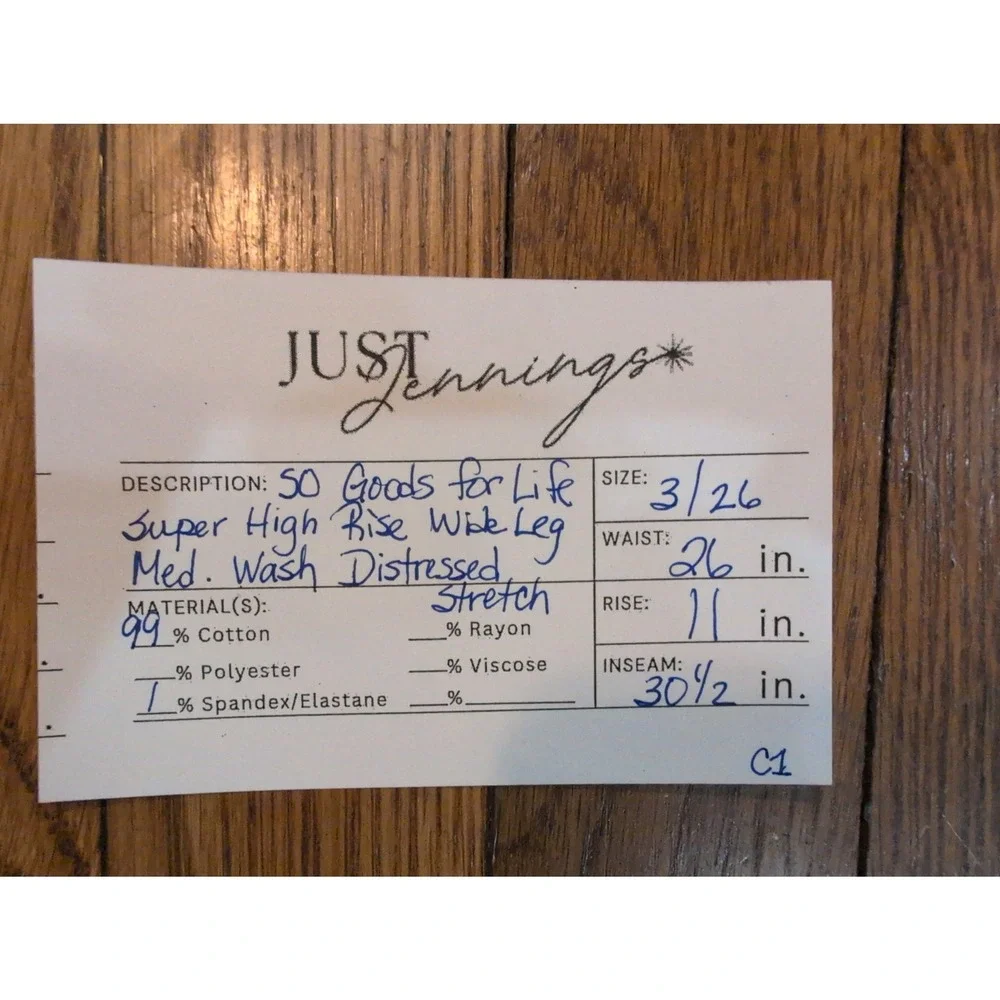 JUST Jennings
DESCRIPTION: SO Goods for Life
Super High Rise Wide Leg
Med. Wash Distressed
Stretch
SIZE: 3/26
WAIST: 26 in.
RISE: 11 in.
INSEAM: 30 1/2 in.
MATERIAL(S):
99 % Cotton
% Rayon
% Polyester
% Viscose
1 % Spandex/Elastane
%
C1